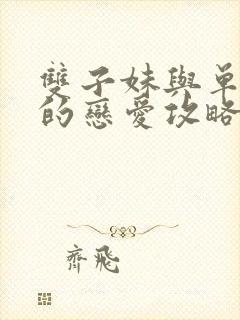 雙子妹與單
的戀愛攻略
齊飛